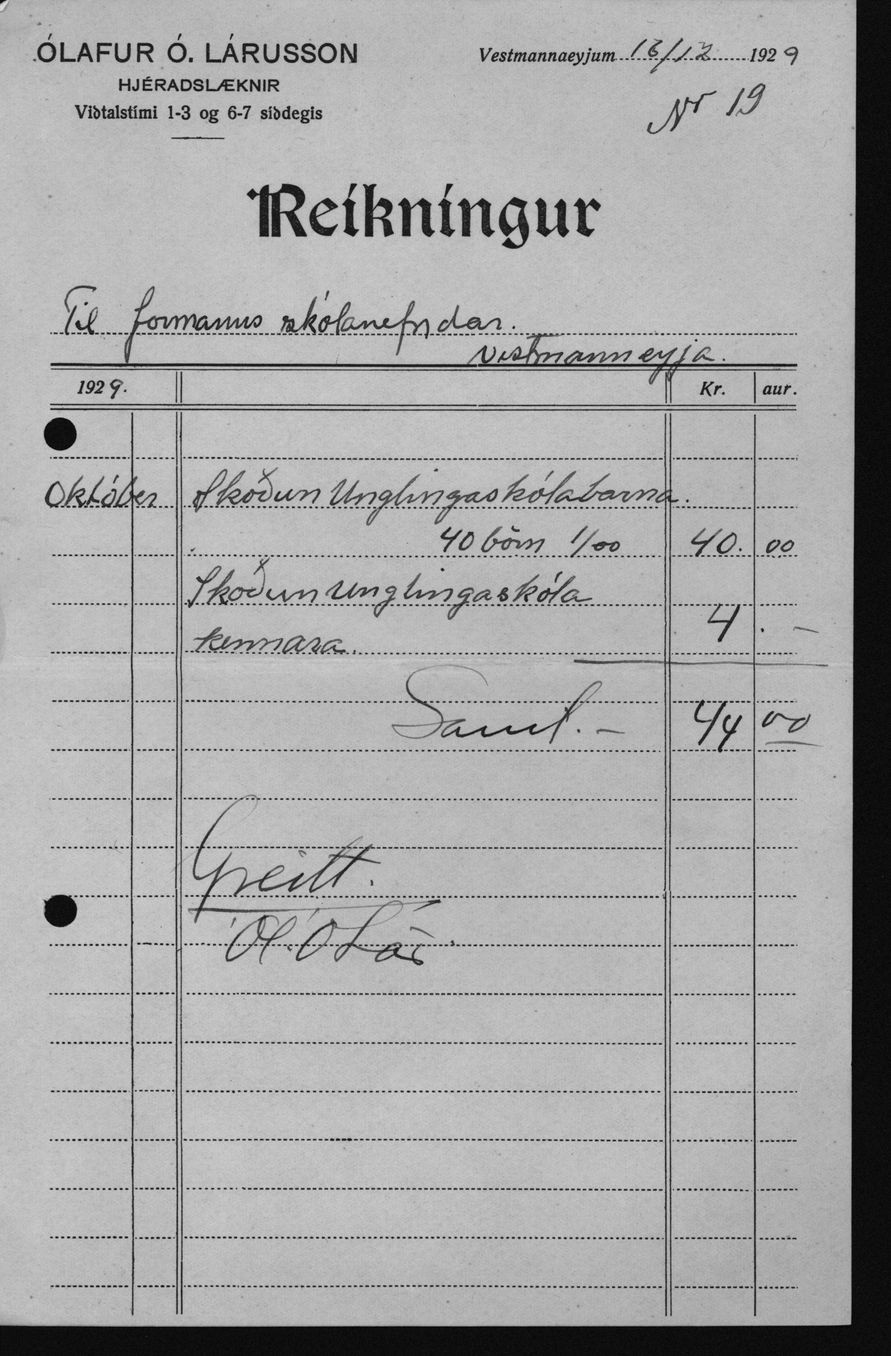 ÓLAFUR Ó. LÁRUSSON
HJÉRADSLÆKNIR
Viðtalstími 1-3 og 6-7 síðdegis
Vestmannaeyjum 13/12 1929
Nr 19
Reikningur
Til formanns skólanefndar.
Vestmanneyja.
1929. Kr. aur.
Október Skóðun Unglingaskólabarna.
40 börn 1/00 40. 00
Skóðun Unglingaskóla
kennara. 4. –
Samt. – 44 00
Greitt.
Ól. Ó Lár.